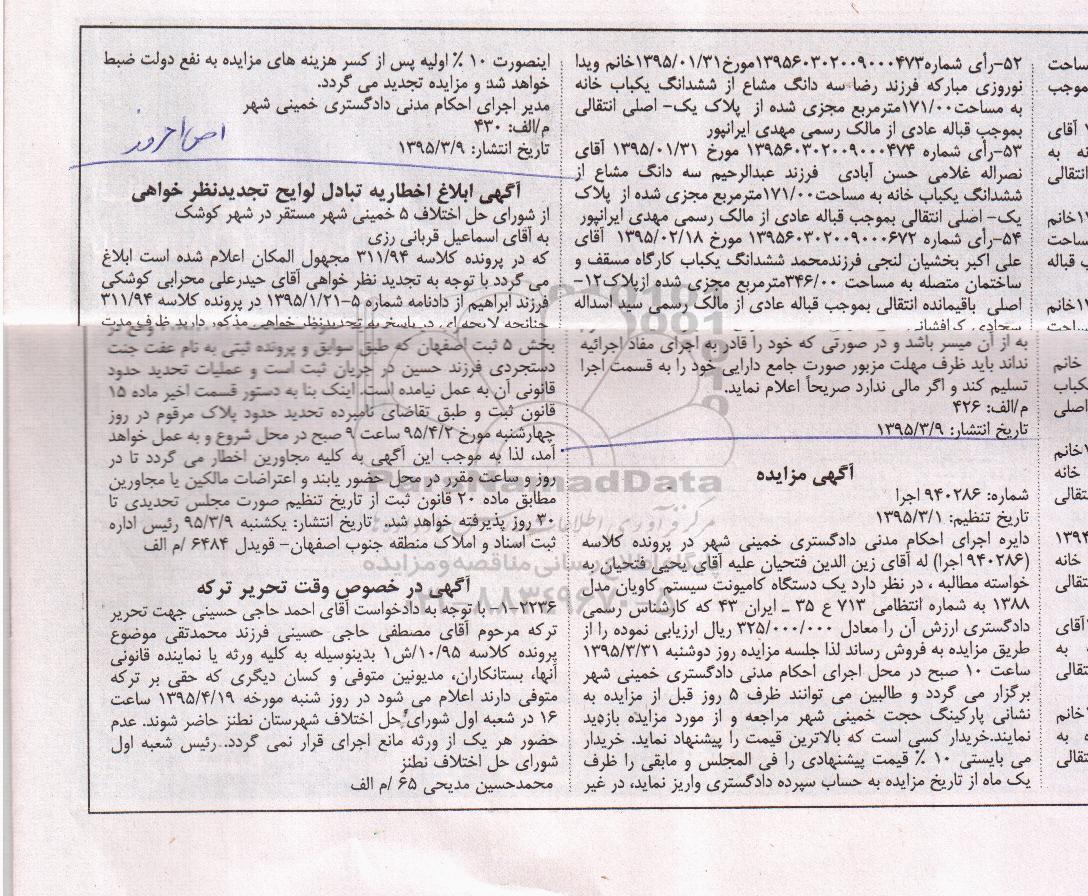 ۵۲-رأی شماره۱۳۹۵۶۰۳۰۲۰۰۹۰۰۰۴۷۳مورخ۱۳۹۵/۰۱/۳۱خانم ویدا
نوروزی مبارکه فرزند رضا سه دانگ مشاع از ششدانگ یکباب خانه
به مساحت۱۷۱/۰۰مترمربع مجزی شده از پلاک یک- اصلی انتقالی
بموجب قباله عادی از مالک رسمی مهدی ایرانپور
۵۳-رأی شماره ۱۳۹۵۶۰۳۰۲۰۰۹۰۰۰۴۷۴ مورخ ۱۳۹۵/۰۱/۳۱ آقای
نصراله غلامی حسن آبادی فرزند عبدالرحیم سه دانگ مشاع از
ششدانگ یکباب خانه به مساحت۱۷۱/۰۰مترمربع مجزی شده از پلاک
یک- اصلی انتقالی بموجب قباله عادی از مالک رسمی مهدی ایرانپور
۵۴-رأی شماره ۱۳۹۵۶۰۳۰۲۰۰۹۰۰۰۶۷۲ مورخ ۱۳۹۵/۰۲/۱۸ آقای
علی اکبر بخشیان لنجی فرزندمحمد ششدانگ یکباب کارگاه مسقف و
ساختمان متصله به مساحت ۳۴۶/۰۰مترمربع مجزی شده ازپلاک۱۲-
اصلی باقیمانده انتقالی بموجب قباله عادی از مالک رسمی سید اسداله
سجادی
به از آن میسر باشد و در صورتی که خود را قادر به اجرای مفاد اجرائیه
نداند باید ظرف مهلت مزبور صورت جامع دارایی خود را به قسمت اجرا
تسلیم کند و اگر مالی ندارد صریحاً اعلام نماید.
م/الف: ۴۲۶
تاریخ انتشار: ۱۳۹۵/۳/۹
آگهی مزایده
شماره: ۹۴۰۲۸۶ اجرا
تاریخ تنظیم: ۱۳۹۵/۳/۱
دایره اجرای احکام مدنی دادگستری خمینی شهر در پرونده کلاسه
(۹۴۰۲۸۶ اجرا) له آقای زین الدین فتحیان علیه آقای یحیی فتحیان به
خواسته مطالبه ، در نظر دارد یک دستگاه کامیونت سیستم کاویان مدل
۱۳۸۸ به شماره انتظامی ۷۱۳ ع ۳۵ ـ ایران ۴۳ که کارشناس رسمی
دادگستری ارزش آن را معادل ۳۲۵/۰۰۰/۰۰۰ ریال ارزیابی نموده را از
طریق مزایده به فروش رساند لذا جلسه مزایده روز دوشنبه ۱۳۹۵/۳/۳۱
ساعت ۱۰ صبح در محل اجرای احکام مدنی دادگستری خمینی شهر
برگزار می گردد و طالبین می توانند ظرف ۵ روز قبل از مزایده به
نشانی پارکینگ حجت خمینی شهر مراجعه و از مورد مزایده بازدید
نمایند.خریدار کسی است که بالاترین قیمت را پیشنهاد نماید. خریدار
می بایستی ۱۰ ٪ قیمت پیشنهادی را فی المجلس و مابقی را ظرف
یک ماه از تاریخ مزایده به حساب سپرده دادگستری واریز نماید، در غیر
اینصورت ۱۰ ٪ اولیه پس از کسر هزینه های مزایده به نفع دولت ضبط
خواهد شد و مزایده تجدید می گردد.
مدیر اجرای احکام مدنی دادگستری خمینی شهر
م/الف: ۴۳۰
تاریخ انتشار: ۱۳۹۵/۳/۹
آگهی ابلاغ اخطاریه تبادل لوایح تجدیدنظر خواهی
از شورای حل اختلاف ۵ خمینی شهر مستقر در شهر کوشک
به آقای اسماعیل قربانی رزی
که در پرونده کلاسه ۳۱۱/۹۴ مجهول المکان اعلام شده است ابلاغ
می گردد با توجه به تجدید نظر خواهی آقای حیدرعلی محرابی کوشکی
فرزند ابراهیم از دادنامه شماره ۵-۱۳۹۵/۱/۲۱ در پرونده کلاسه ۳۱۱/۹۴
چنانچه لایحه ای در پاسخ به تجدیدنظر خواهی مذکور دارید ظرف مدت
بخش ۵ ثبت اصفهان که طبق سوابق و پرونده ثبتی به نام عفت جنت
دستجردی فرزند حسین در جریان ثبت است و عملیات تحدید حدود
قانونی آن به عمل نیامده است. اینک بنا به دستور قسمت اخیر ماده ۱۵
قانون ثبت و طبق تقاضای نامبرده تحدید حدود پلاک مرقوم در روز
چهارشنبه مورخ ۹۵/۴/۲ ساعت ۹ صبح در محل شروع و به عمل خواهد
آمد، لذا به موجب این آگهی به کلیه مجاورین اخطار می گردد تا در
روز و ساعت مقرر در محل حضور یابند و اعتراضات مالکین یا مجاورین
مطابق ماده ۲۰ قانون ثبت از تاریخ تنظیم صورت مجلس تحدیدی تا
۳۰ روز پذیرفته خواهد شد. تاریخ انتشار: یکشنبه ۹۵/۳/۹ رئیس اداره
ثبت اسناد و املاک منطقه جنوب اصفهان- قویدل ۶۴۸۴ /م الف
آگهی در خصوص وقت تحریر ترکه
۱-۲۲۳۶- با توجه به دادخواست آقای احمد حاجی حسینی جهت تحریر
ترکه مرحوم آقای مصطفی حاجی حسینی فرزند محمدتقی موضوع
پرونده کلاسه ۱۰/۹۵/ش۱ بدینوسیله به کلیه ورثه یا نماینده قانونی
آنها، بستانکاران، مدیونین متوفی و کسان دیگری که حقی بر ترکه
متوفی دارند اعلام می شود در روز شنبه مورخه ۱۳۹۵/۴/۱۹ ساعت
۱۶ در شعبه اول شورای حل اختلاف شهرستان نطنز حاضر شوند. عدم
حضور هر یک از ورثه مانع اجرای قرار نمی گردد..رئیس شعبه اول
شورای حل اختلاف نطنز
محمدحسین مدیحی ۶۵ /م الف